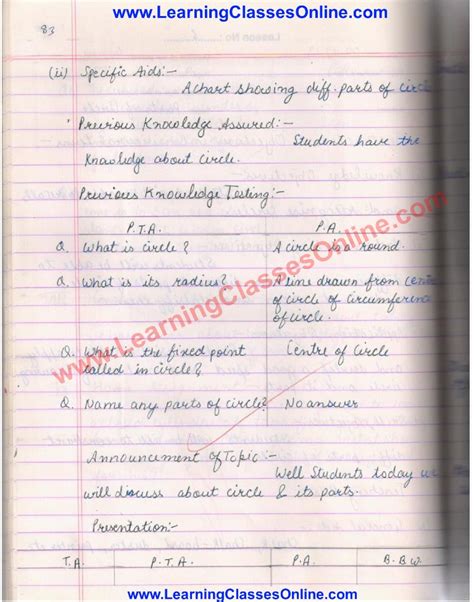 www.LearningClassesOnline.com
83
(ii) Specific Aids:-
A chart showing diff. parts of circle
Previous Knowledge Assured:-
Students have the
knowledge about circle.
Previous Knowledge Testing:-
P.T.A. P.A.
Q. What is circle? A circle is a round.
Q. What is its radius? A line drawn from centre
of circle of circumference
of circle.
Q. What is the fixed point Centre of Circle
called in circle?
Q. Name any parts of circle? No answer
www.LearningClassesOnline.com
Announcement of Topic:-
Well Students today we
will discuss about circle & its parts.
Presentation:-
T.A. P.T.A. P.A. B.B.W.
www.LearningClassesOnline.com